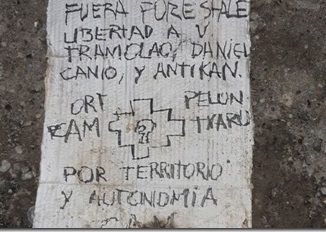 FUERA FORESTALE
LIBERTAD A V
TRAMOLAO, DANIEL
CANIO, Y ANTIKAN.
ORT PELON
CAM TXARU
POR TERRITORIO
Y AUTONOMIA
CAM